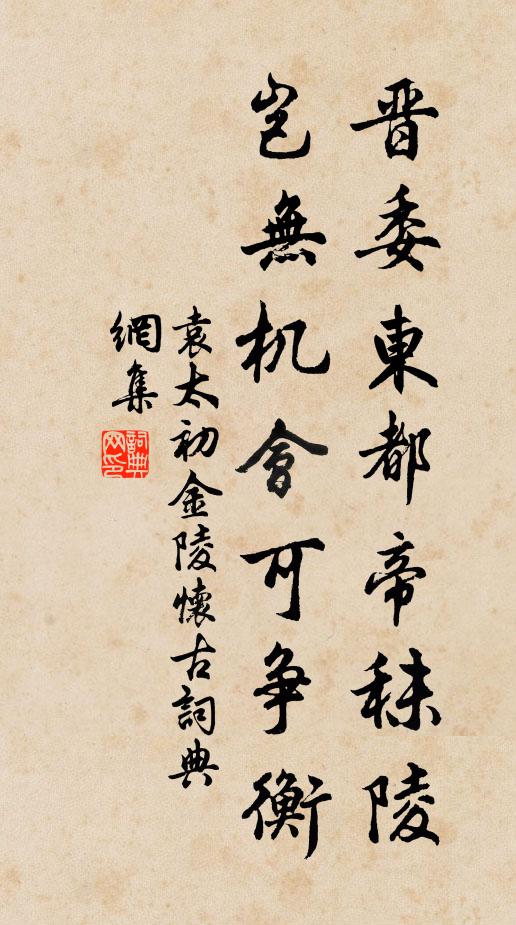 晋委東都帝秣陵
豈無机會可争衡
袁太初金陵懷古詞典
網集
詞典
网印